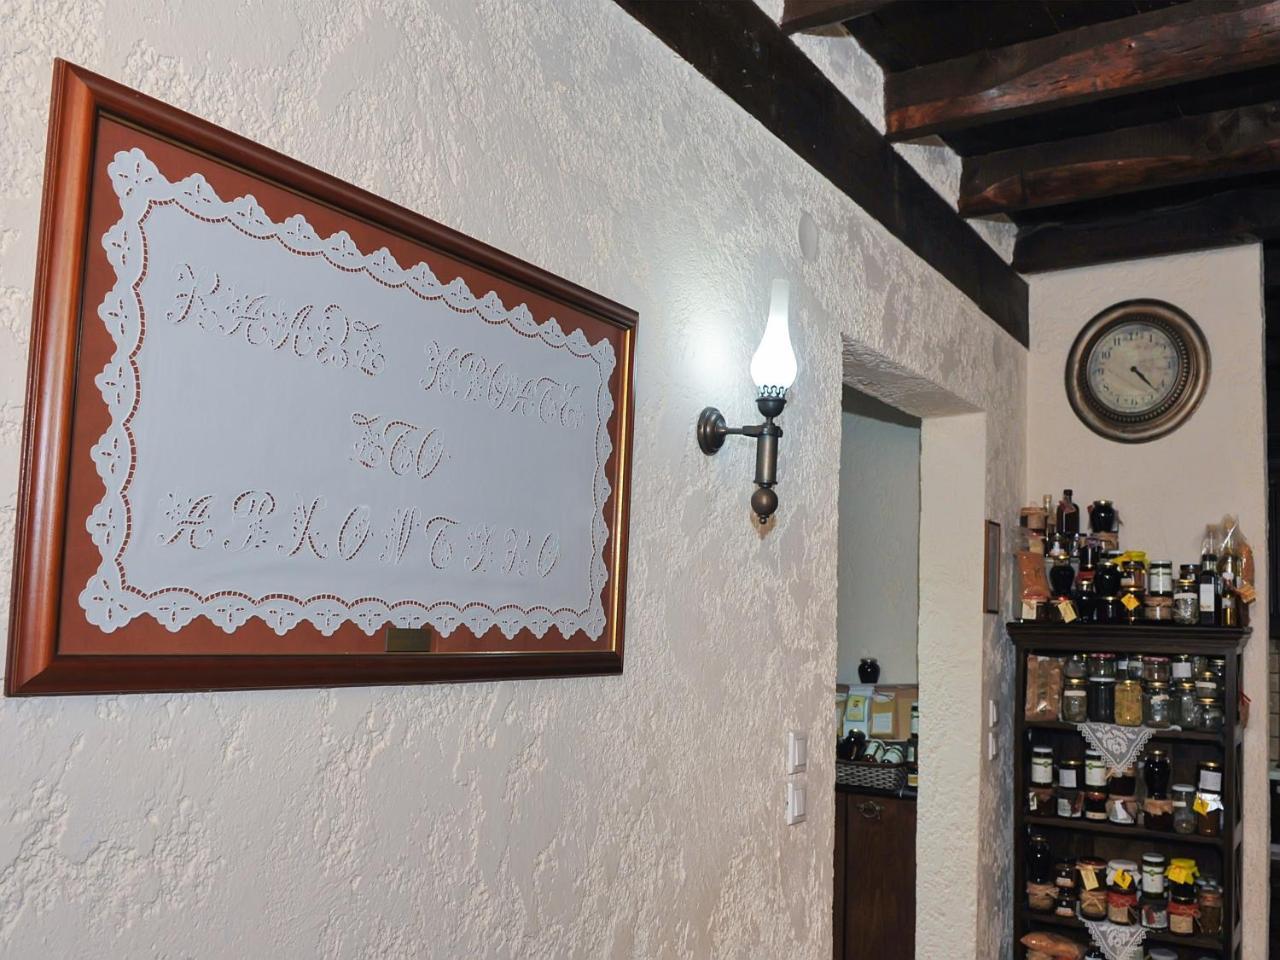 ΚΑΛΩΣ ΗΡΘΑΤΕ
ΣΤΟ
ΑΡΧΟΝΤΙΚΟ